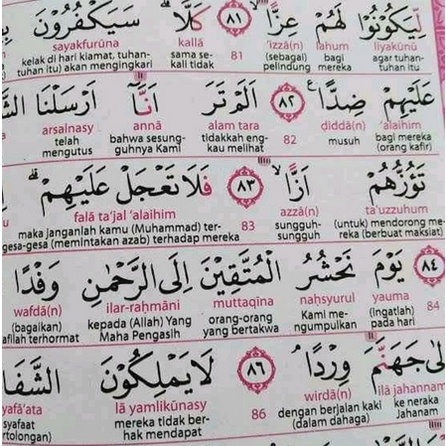 لِيَكُوْنُوْا لَهُمْ عِزًّا ۙ ﴿٨١﴾ كَلَّا ۗ سَيَكْفُرُوْنَ
liyakūnū lahum 'izzā(n) 81 kallā sayakfurūna
agar tuhan-tuhan itu bagi mereka (sebagai) pelindung sama se-kali tidak kelak di hari kiamat, tuhan-tuhan itu) akan mengingkari
عَلَيْهِمْ ضِدًّا ࣖ ﴿٨٢﴾ اَلَمْ تَرَ اَنَّآ اَرْسَلْنَا
'alaihim diddā(n) 82 alam tara annā arsalnasy
bagi mereka (orang kafir) musuh tidakkah eng-kau melihat bahwa sesung-guhnya Kami telah mengutus
تَؤُزُّهُمْ اَزًّا ۙ ﴿٨٣﴾ فَلَا تَعْجَلْ عَلَيْهِمْ ۗ
ta'uzzuhum azzā(n) 83 falā ta'jal 'alaihim
(untuk) mendorong me-reka (berbuat maksiat) sungguh-sungguh maka janganlah kamu (Muhammad) ter-gesa-gesa (memintakan azab) terhadap mereka
﴿٨٤﴾ يَوْمَ نَحْشُرُ الْمُتَّقِيْنَ اِلَى الرَّحْمٰنِ وَفْدًا
84 yauma naḥsyurul muttaqīna ilar-raḥmāni wafdā(n)
(ingatlah) pada hari Kami me-ngumpulkan orang-orang yang bertakwa kepada (Allah) Yang Maha Pengasih (bagaikan) terhormat
جَهَنَّمَ وِرْدًا ۘ ﴿٨٦﴾ لَا يَمْلِكُوْنَ
ilā jahannam wirdā(n) 86 lā yamlikūnasy
ke neraka Jahanam dengan berjalan kaki (dalam dahaga) mereka tidak ber-hak mendapat